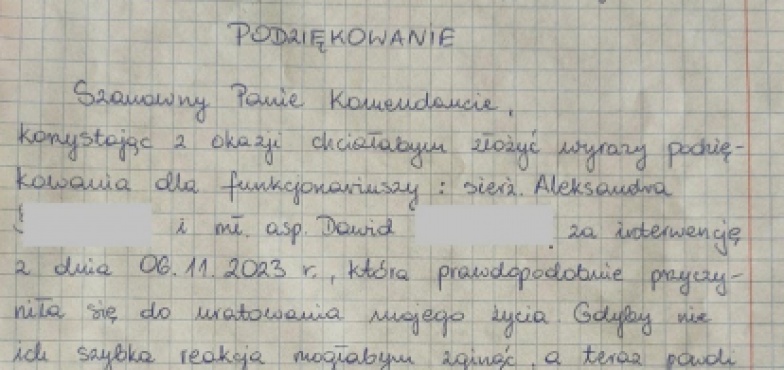 PODZIĘKOWANIE
Szanowny Panie Komendancie,
korzystając z okazji chciałabym złożyć wyrazy podzię-
kowania dla funkcjonariuszy : sierż. Aleksandra
i mł. asp. Dawid za interwencję
z dnia 06.11.2023 r., która prawdopodobnie przyczy-
niła się do uratowania mojego życia. Gdyby nie
ich szybka reakcja mogłabym zginąć, a teraz